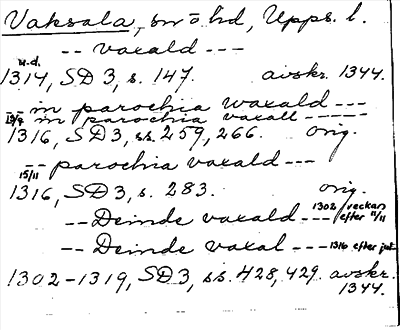 Vaksala, sn o hd, Upps. l.
-- vaxald ---
u.d.
1314, SD 3, s. 147. avskr. 1344.
-- in parochia waxald ---
13/9 in parochia vaxall -----
1316, SD 3, ss. 259, 266. orig.
-- parochia vaxald ---
15/11
1316, SD 3, s. 283. orig.
-- Deinde vaxald --- 1302 veckan efter 11/11
-- Deinde vaxal --- 1316 efter jul
1302-1319, SD 3, ss. 428, 429. avskr.
1344.